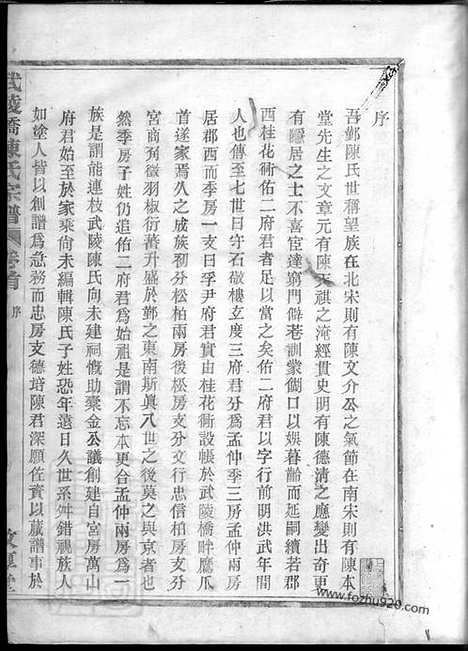 序
吾鄞陳氏世稱望族在北宋則有陳文介公之氣節在南宋則有陳本
堂先生之文章元有陳天祺之淹經貫史明有陳德清之應變出奇更
有隱居之士不喜宦達窮門僻巷訓蒙餬口以娛暮齡而延嗣續若郡
西桂花衕佑二府君者足以當之矣佑二府君以字行前明洪武年間
人也傳至七世曰守石敬樓玄度三府君分爲孟仲季三房孟仲兩房
居郡西而季房一支曰孚尹府君實由桂花衕設帳於武陵橋畔
首遂家焉久之成族初分松柏兩房後松房支分忠
宮商角徵羽椒衍蕃升盛於鄞之東南斯眞八世之後莫之與京者也
然季房子姓仍追佑二府君爲始祖是謂不忘本更合孟仲兩房爲一
族是謂能連枝武陵陳氏向未建祠慨助棄金公議創建自宮房萬山
府君始至於家乘尙未編輯陳氏子姓恐年遠日久世系舛錯視族人
如塗人皆以創譜爲急務而忠房支德培陳君深願佐賚以蕆譜事於
武陵橋陳氏宗譜
卷首
序
敦厚堂
www.fozhu920.com